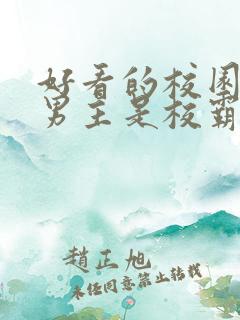 好看的校园
男主是校霸
趙正旭
未经同意禁止转载